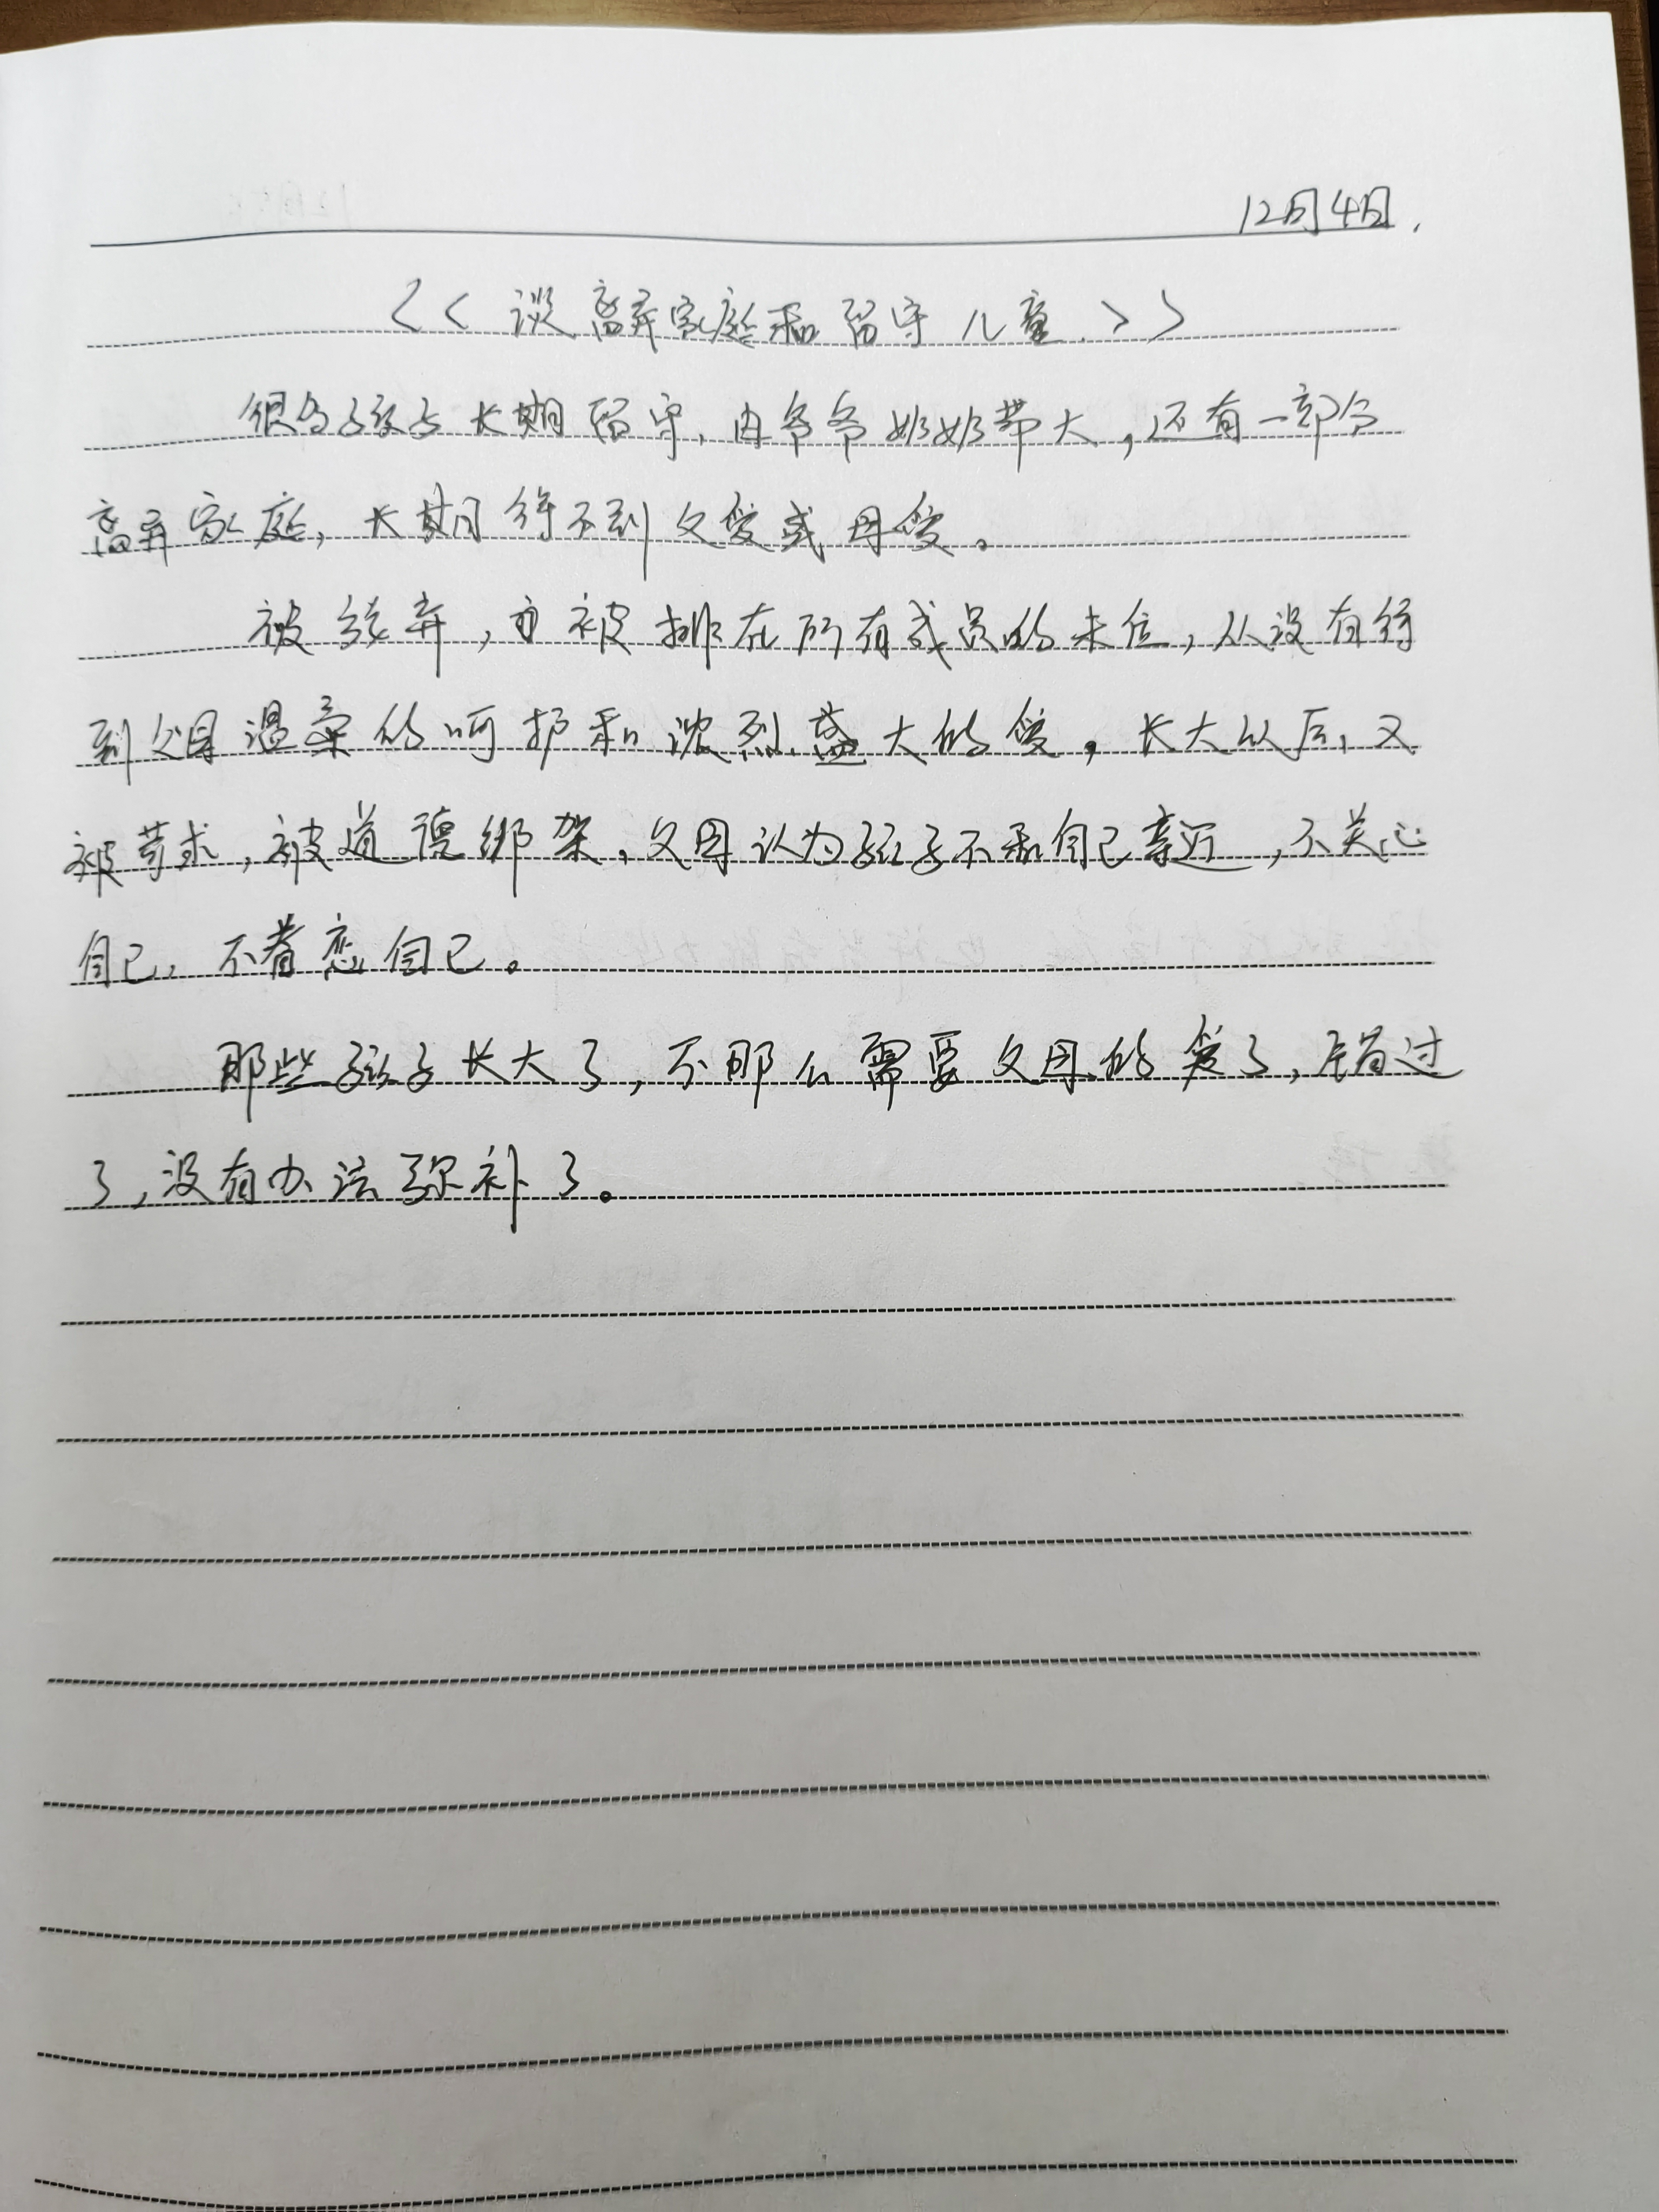 12月4日.
<<谈离异家庭和留守儿童>>
很多孩子长期留守,由爷爷奶奶带大,还有一部分
离异家庭,长期得不到父爱或母爱。
被放弃,也被排在所有成员的末位,从没有得
到父母温柔的呵护和浓烈盛大的爱,长大以后,又
被苛求,被道德绑架,父母认为孩子不和自己亲近,不关心
自己,不眷恋自己。
那些孩子长大了,不那么需要父母的爱了,错过
了,没有办法弥补了。